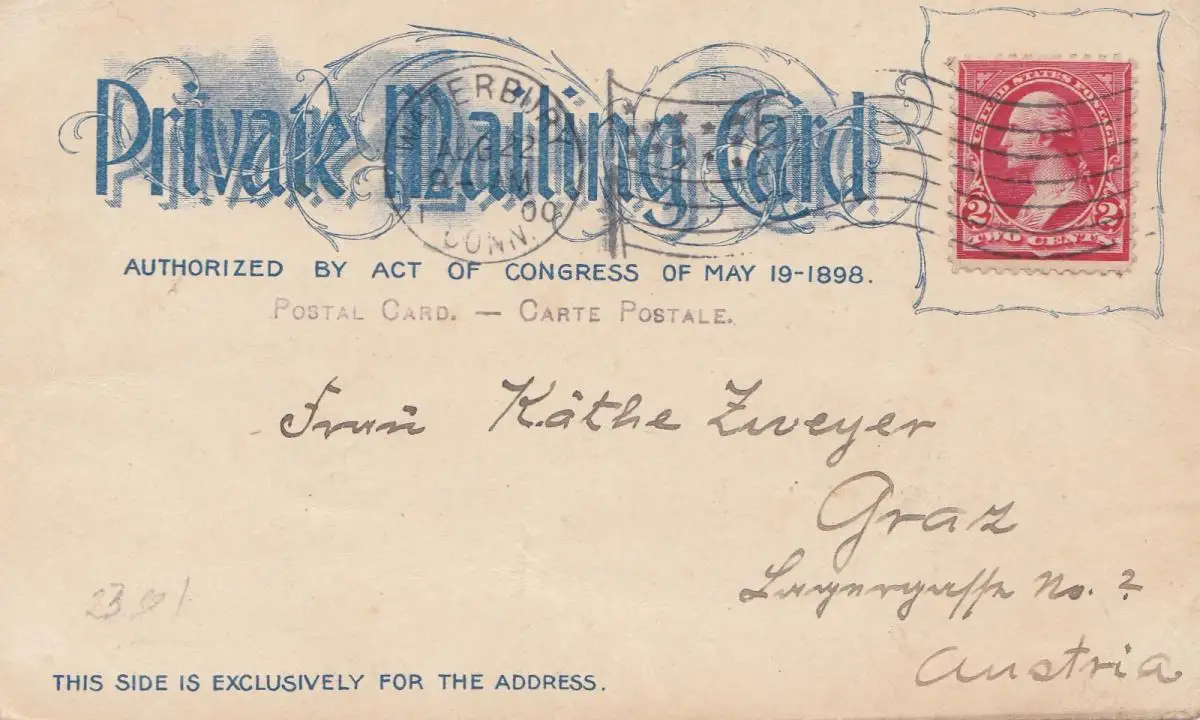 Private Mailing Card
WATERBURY
AUG 22
9 - AM
1 00
CONN.
UNITED STATES POSTAGE
2 2
TWO CENTS
AUTHORIZED BY ACT OF CONGRESS OF MAY 19-1898.
POSTAL CARD. — CARTE POSTALE.
Frau Käthe Zweyer
Graz
Lagergasse No. 2
Austria
THIS SIDE IS EXCLUSIVELY FOR THE ADDRESS.